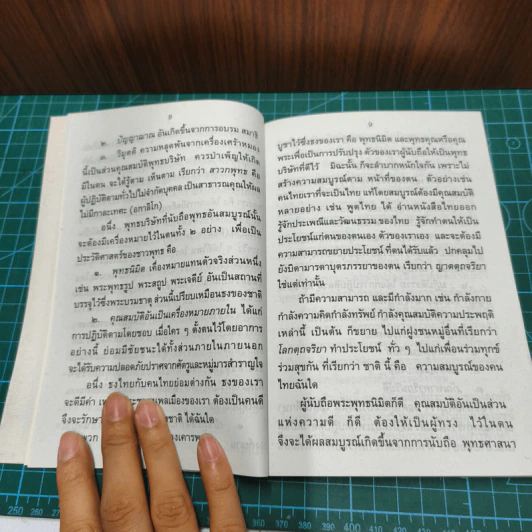 ๘
๒. ปัญญาฌาณ อันเกิดขึ้นจากการอบรม สมาธิ
๓. วิมุตติ ความหลุดพ้นจากเครื่องเศร้าหมอง
นี้เป็นส่วนคุณสมบัติพุทธบริษัท ควรบำเพ็ญให้เกิด
มีในตน จะได้รู้ตาม เห็นตาม เรียกว่า สาวกพุทธ คือ
ผู้ปฏิบัติตามทั่วไปไม่จำกัดบุคคล เป็นสาธารณคุณให้ผล
ไม่มีกาละเทศะ (อกาลิโก)
อนึ่ง พุทธบริษัทที่นับถือพุทธอันสมบูรณ์นั้น
จะต้องมีเครื่องหมายไว้ในตนทั้ง ๒ อย่าง เพื่อเป็น
ประวัติศาสตร์ของชาวพุทธ คือ
๑. พุทธนิมิต เครื่องหมายแทนตัวจริงส่วนหนึ่ง
เช่น พระพุทธรูป พระสถูป พระเจดีย์ อันเป็นสถานที่
บรรจุไว้ซึ่งพระบรมธาตุ ส่วนนี้เปรียบเหมือนธงของชาติ
๒. คุณสมบัติอันเป็นเครื่องหมายภายใน ได้แก่
การปฏิบัติตามโดยชอบ เมื่อใคร ๆ ตั้งตนไว้โดยอาการ
อย่างนี้ ย่อมมีชัยชนะได้ทั้งส่วนภายในภายนอก
จะได้รับความปลอดภัยปราศจากศัตรูและหมู่มารสำราญใจ
อนึ่ง ธงไทยกับคนไทยย่อมต่างกัน ธงของเรา
จะดีมีค่า พลเมืองของเรา ต้องเป็นคนดี
จึงจะรักษา ชาติ ได้ฉันใด
เคารพ
๙
บูชาไว้ซึ่งธงของเรา คือ พุทธนิมิต และพุทธคุณหรือคุณ
พระเพื่อเป็นการปรับปรุง ตัวของเราผู้นับถือให้เป็นพุทธ
บริษัทที่ดีไว้ มิฉะนั้น ก็จะลำบากหนักใจกัน เพราะไม่
สร้างความสมบูรณ์ตาม หน้าที่ของตน ตัวอย่างเช่น
คนไทยเราที่จะเป็นไทย แท้โดยสมบูรณ์ต้องมีคุณสมบัติ
หลายอย่าง เช่น พูดไทย ได้ อ่านหนังสือไทยออก
รู้จักประเพณีและวัฒนธรรม ของไทย รู้จักทำตนให้เป็น
ประโยชน์แก่ตนของตนเอง ตัวของเราเอง และจะต้องมี
ความสามารถขยายประโยชน์ ที่ตนได้รับแล้ว ปกคลุมไป
ยังบิดามารดาบุตรภรรยาของตน เรียกว่า ญาตตถจริยา
ใช่แต่เท่านั้น
ถ้ามีความสามารถ และมีกำลังมาก เช่น กำลังกาย
กำลังความคิดกำลังทรัพย์ กำลังคุณสมบัติความประพฤติ
เหล่านี้ เป็นต้น ก็ขยาย ไปแก่ฝูงชนหมู่อื่นที่เรียกว่า
โลกตถจริยา ทำประโยชน์ ทั่ว ๆ ไปแก่เพื่อนร่วมทุกข์
ร่วมสุขกัน ที่เรียกว่า ชาติ นี้ คือ ความสมบูรณ์ของคน
ไทยฉันใด
ผู้นับถือพระพุทธนิมิตก็ดี คุณสมบัติอันเป็นส่วน
แห่งความดี ก็ดี ต้องให้เป็นผู้ทรง ไว้ในตน
จึงจะได้ผลสมบูรณ์เกิดขึ้นจากการนับถือ พุทธศาสนา